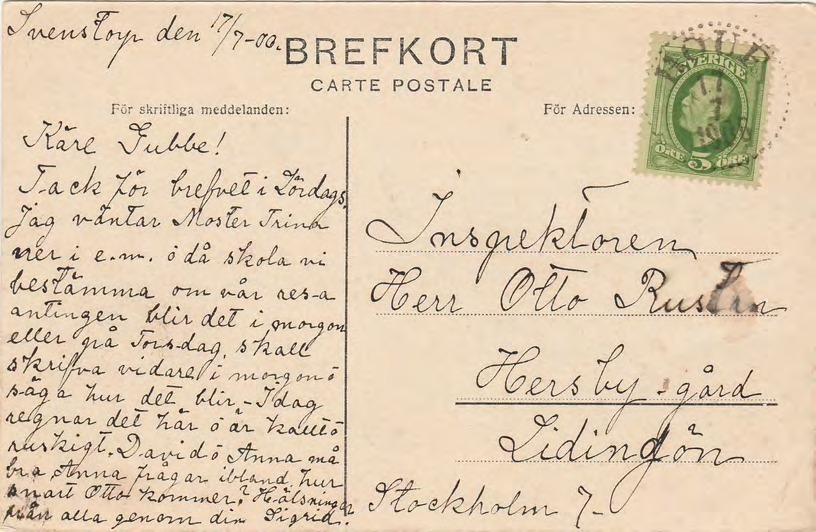 Svenstorp den 17/7-00.
BREFKORT
CARTE POSTALE
För skriftliga meddelanden:
För Adressen:
SVERIGE
ÖRE 5 ÖRE
17
7
Käre Gubbe!
Tack för brefvet i Lördags.
Jag väntar Moster Trina
ner i e.m. o då skola vi
bestämma om vår resa
antingen blir det i morgon
eller på Torsdag, skall
skrifva vidare i morgon o
säga hur det blir - I dag
regnar det här o är kallt o
ruskigt. David o Anna må
bra Anna frågar ibland hur
snart Otto kommer? Hälsningar
från alla genom din Sigrid.
Inspektoren
Herr Otto
Hersby - gård
Lidingön
Stockholm 7-